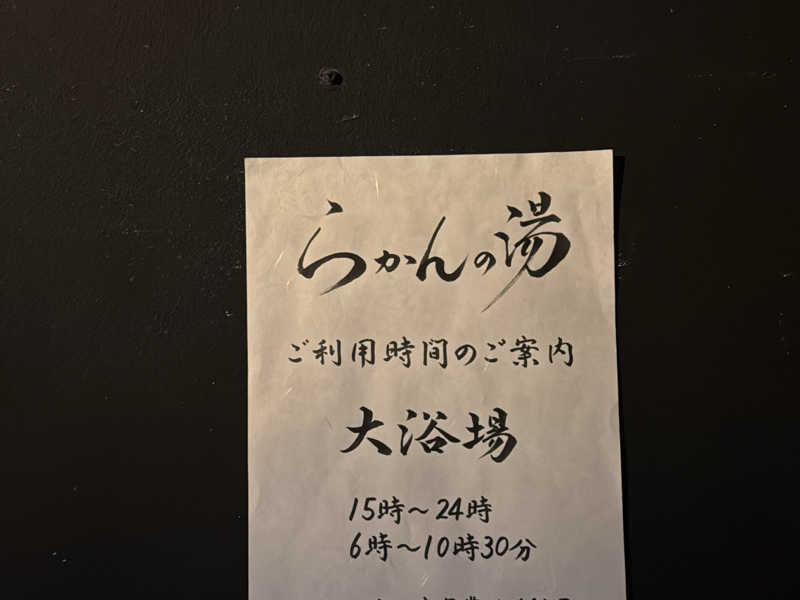 らかんの湯
ご利用時間のご案内
大浴場
15時～24時
6時～10時30分